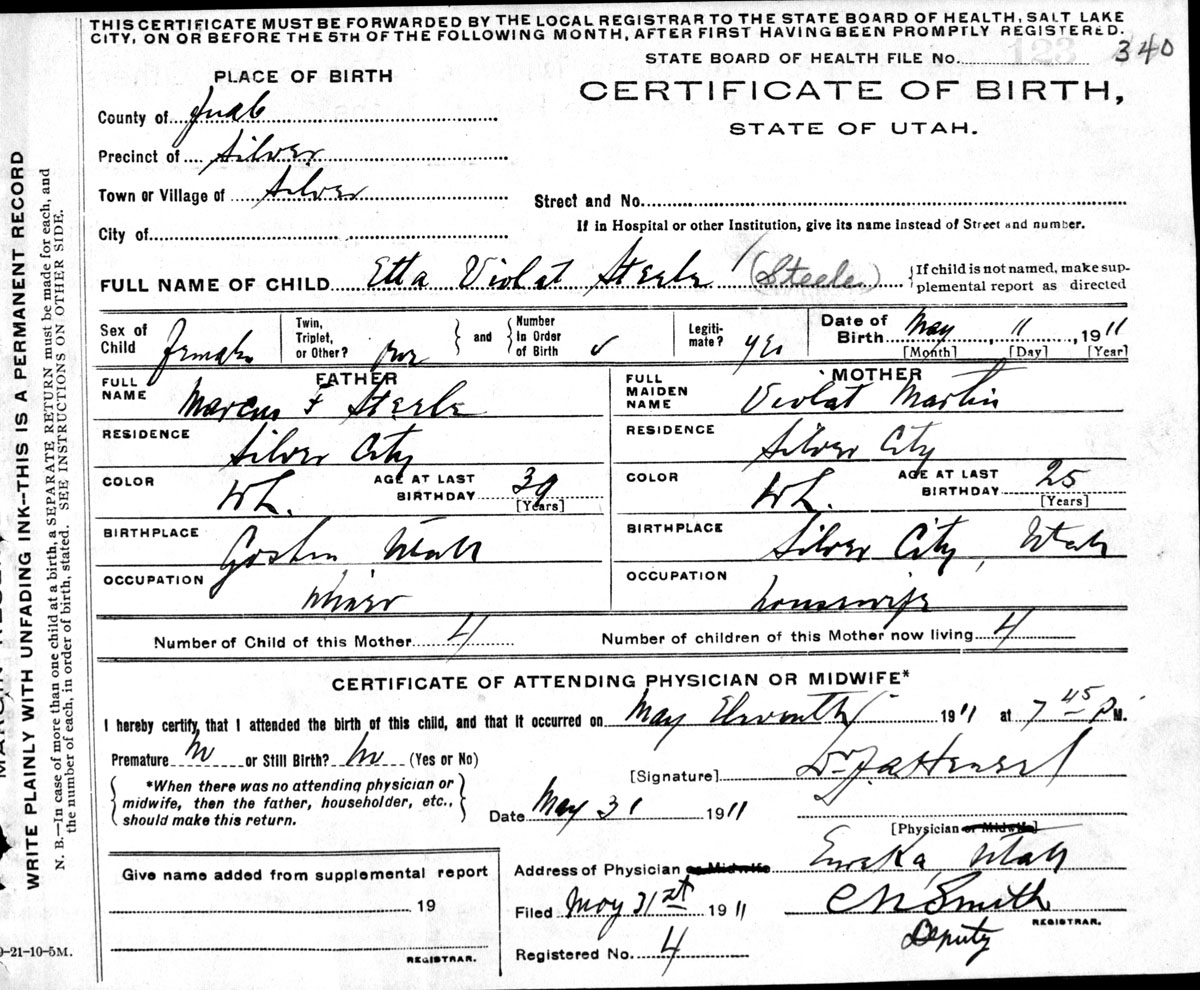 THIS CERTIFICATE MUST BE FORWARDED BY THE LOCAL REGISTRAR TO THE STATE BOARD OF HEALTH, SALT LAKE
CITY, ON OR BEFORE THE 5TH OF THE FOLLOWING MONTH, AFTER FIRST HAVING BEEN PROMPTLY REGISTERED.
STATE BOARD OF HEALTH FILE No. 123 340
PLACE OF BIRTH
CERTIFICATE OF BIRTH,
STATE OF UTAH.
County of Juab
Precinct of Silver
Town or Village of Silver
Street and No.
City of
If in Hospital or other Institution, give its name instead of Street and number.
FULL NAME OF CHILD Etta Violat Steele (Steele)
If child is not named, make sup-
plemental report as directed
Sex of Child Female
Twin, Triplet, or Other? one
and
Number In Order of Birth ✓
Legiti- mate? yes
Date of Birth May, 11, 1911
[Month] [Day] [Year]
FATHER
FULL NAME Marcus F Steele
RESIDENCE Silver City
COLOR Wh. AGE AT LAST BIRTHDAY 39 [Years]
BIRTHPLACE Goshen, Utah
OCCUPATION Miner
MOTHER
FULL MAIDEN NAME Violat Martin
RESIDENCE Silver City
COLOR Wh. AGE AT LAST BIRTHDAY 25 [Years]
BIRTHPLACE Silver City, Utah
OCCUPATION housewife
Number of Child of this Mother 4
Number of children of this Mother now living 4
CERTIFICATE OF ATTENDING PHYSICIAN OR MIDWIFE*
I hereby certify, that I attended the birth of this child, and that it occurred on May Eleventh 1911 at 7 45 P M.
Premature No or Still Birth? No (Yes or No)
*When there was no attending physician or
midwife, then the father, householder, etc.,
should make this return.
[Signature] Dr J A Hensel
Date May 31 1911
[Physician or Midwife]
Address of Physician or Midwife Eureka, Utah
Filed May 31st 1911
C N Smith
REGISTRAR.
Deputy
Registered No. 4
Give name added from supplemental report
19
REGISTRAR.
9-21-10-5M.
WRITE PLAINLY WITH UNFADING INK--THIS IS A PERMANENT RECORD
N. B.—In case of more than one child at a birth, a SEPARATE RETURN must be made for each, and
the number of each, in order of birth, stated. SEE INSTRUCTIONS ON OTHER SIDE.